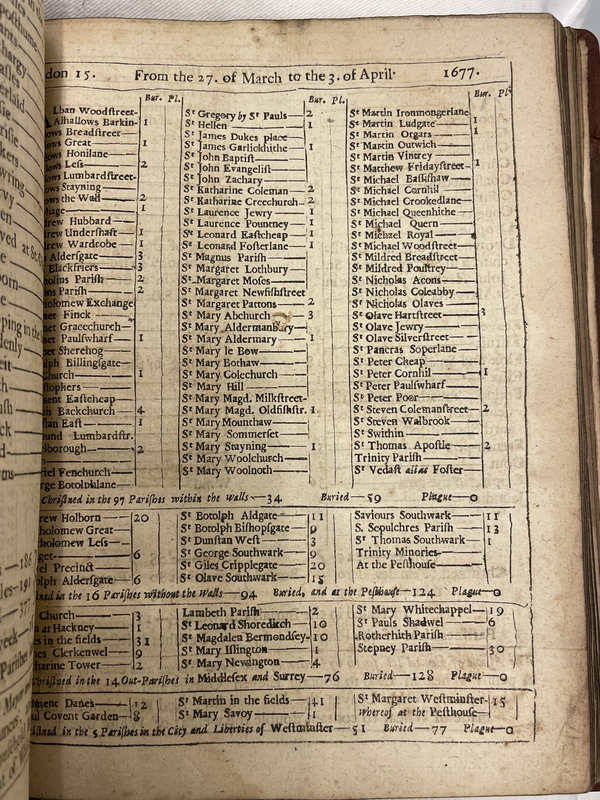 don 15. From the 27. of March to the 3. of April 1677.
Bur. Pl.
Lban Woodstreet-
Alhallows Barkin- 1
ows Breadstreet
ows Great 1
ows Honilane
ows Less 2
ows Lumbardstreet
ows Stayning
ows the Wall 2
hage 1
rew Hubbard
rew Undershaft 1
rew Wardrobe 1
Aldersgate 3
Blackfriers 3
holins Parish 2
ns Parish 2
olomew Exchange
net Finck
net Gracechurch
net Paulswharf 1
net Sherehog
olph Billingsgate
Church 1
stophers
ment Eastcheap
is Backchurch 4
stan East 1
und Lumbardstr.
lborough 2
riel Fenchurch
rge Botolphlane
Bur. Pl.
St Gregory by St Pauls 2
St Hellen 1
St James Dukes place
St James Garlickhithe 1
St John Baptist
St John Evangelist
St John Zachary
St Katharine Coleman 2
St Katharine Creechurch 2
St Laurence Jewry 1
St Laurence Pountney 1
St Leonard Eastcheap 1
St Leonard Fosterlane 1
St Magnus Parish
St Margaret Lothbury
St Margaret Moses
St Margaret Newfishstreet
St Margaret Pattons 2
St Mary Abchurch 3
St Mary Aldermanbury
St Mary Aldermary 1
St Mary le Bow
St Mary Bothaw
St Mary Colechurch
St Mary Hill
St Mary Magd. Milkstreet
St Mary Magd. Oldfishstr. 1
St Mary Mounthaw
St Mary Sommerset
St Mary Stayning 1
St Mary Woolchurch
St Mary Woolnoth
Bur. Pl.
St Martin Ironmongerlane
St Martin Ludgate 1
St Martin Orgars 1
St Martin Outwich
St Martin Vintrey
St Matthew Fridaystreet 1
St Michael Bassishaw
St Michael Cornhil
St Michael Crookedlane
St Michael Queenhithe
St Michael Quern
St Michael Royal
St Michael Woodstreet
St Mildred Breadstreet
St Mildred Poultrey
St Nicholas Acons
St Nicholas Coleabby
St Nicholas Olaves
St Olave Hartstreet 3
St Olave Jewry
St Olave Silverstreet
St Pancras Soperlane
St Peter Cheap
St Peter Cornhil 1
St Peter Paulswharf
St Peter Poor
St Steven Colemanstreet 2
St Steven Walbrook
St Swithin
St Thomas Apostle 2
Trinity Parish
St Vedast alias Foster
Christned in the 97 Parishes within the Walls—34 Buried—59 Plague—0
rew Holborn 20
holomew Great
holomew Less
get 6
el Precinct
olph Aldersgate 6
St Botolph Aldgate 11
St Botolph Bishopsgate 9
St Dunstan West 3
St George Southwark 9
St Giles Cripplegate 20
St Olave Southwark 15
Saviours Southwark 11
S. Sepulchres Parish 13
St Thomas Southwark 1
Trinity Minories
At the Pesthouse
ned in the 16 Parishes without the Walls—94 Buried, and at the Pesthouse—124 Plague—0
Church 3
n at Hackney 1
es in the fields 31
es Clerkenwel 9
harine Tower 2
Lambeth Parish 2
St Leonard Shoreditch 10
St Magdalen Bermondsey 10
St Mary Islington 1
St Mary Newington 4
St Mary Whitechappel 19
St Pauls Shadwel 6
Rotherhith Parish
Stepney Parish 30
Christned in the 14 Out-Parishes in Middlesex and Surrey—76 Buried—128 Plague—0
ment Danes 12
ul Covent Garden 8
St Martin in the fields 41
St Mary Savoy 1
St Margaret Westminster 15
whereof at the Pesthouse
istned in the 5 Parishes in the City and Liberties of Westminster—51 Buried—77 Plague—0